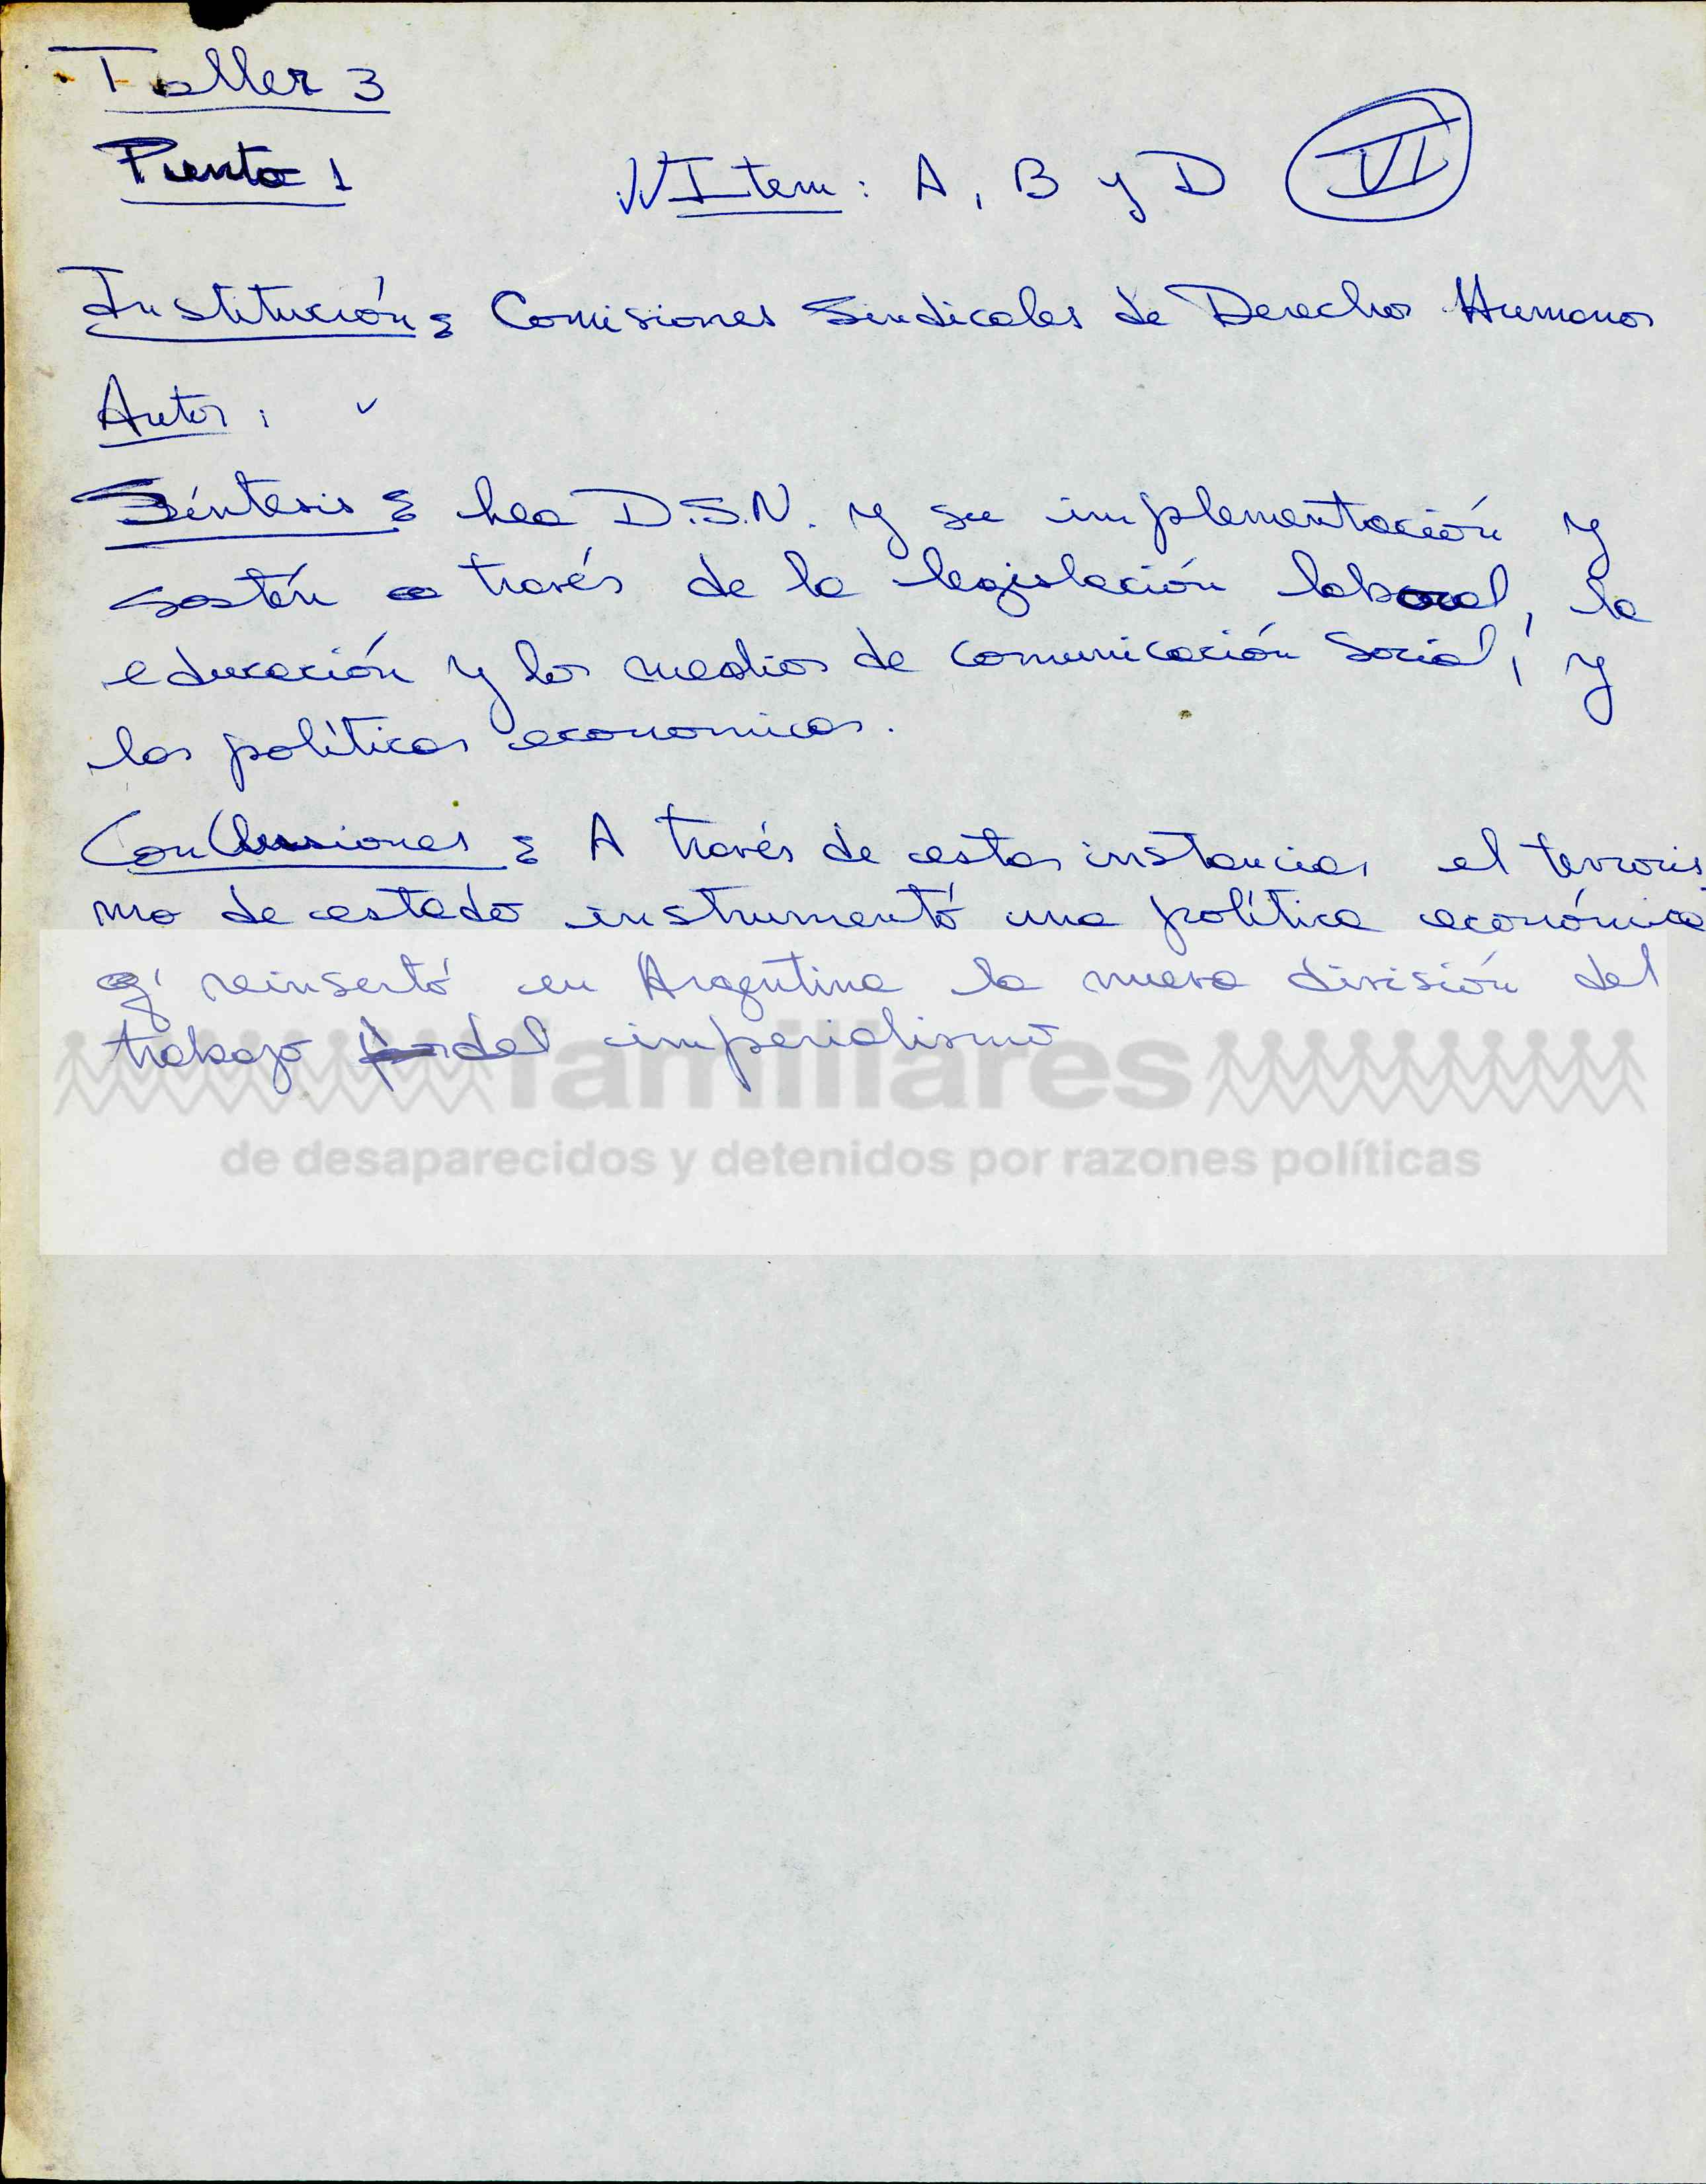 Taller 3
Punto 1 Item: A, B y D VI
Institución: Comisiones Sindicales de Derechos Humanos
Autor:
Síntesis: La D.S.N. y su implementación y
sostén a través de la legislación laboral, la
educación y los medios de comunicación Social, y
las políticas economicas.
Conclusiones: A través de estas instancias el terroris
mo de estado instrumentó una política económica
q' reinsertó en Argentina la nueva división del
trabajo del imperialismo
familiares
de desaparecidos y detenidos por razones políticas